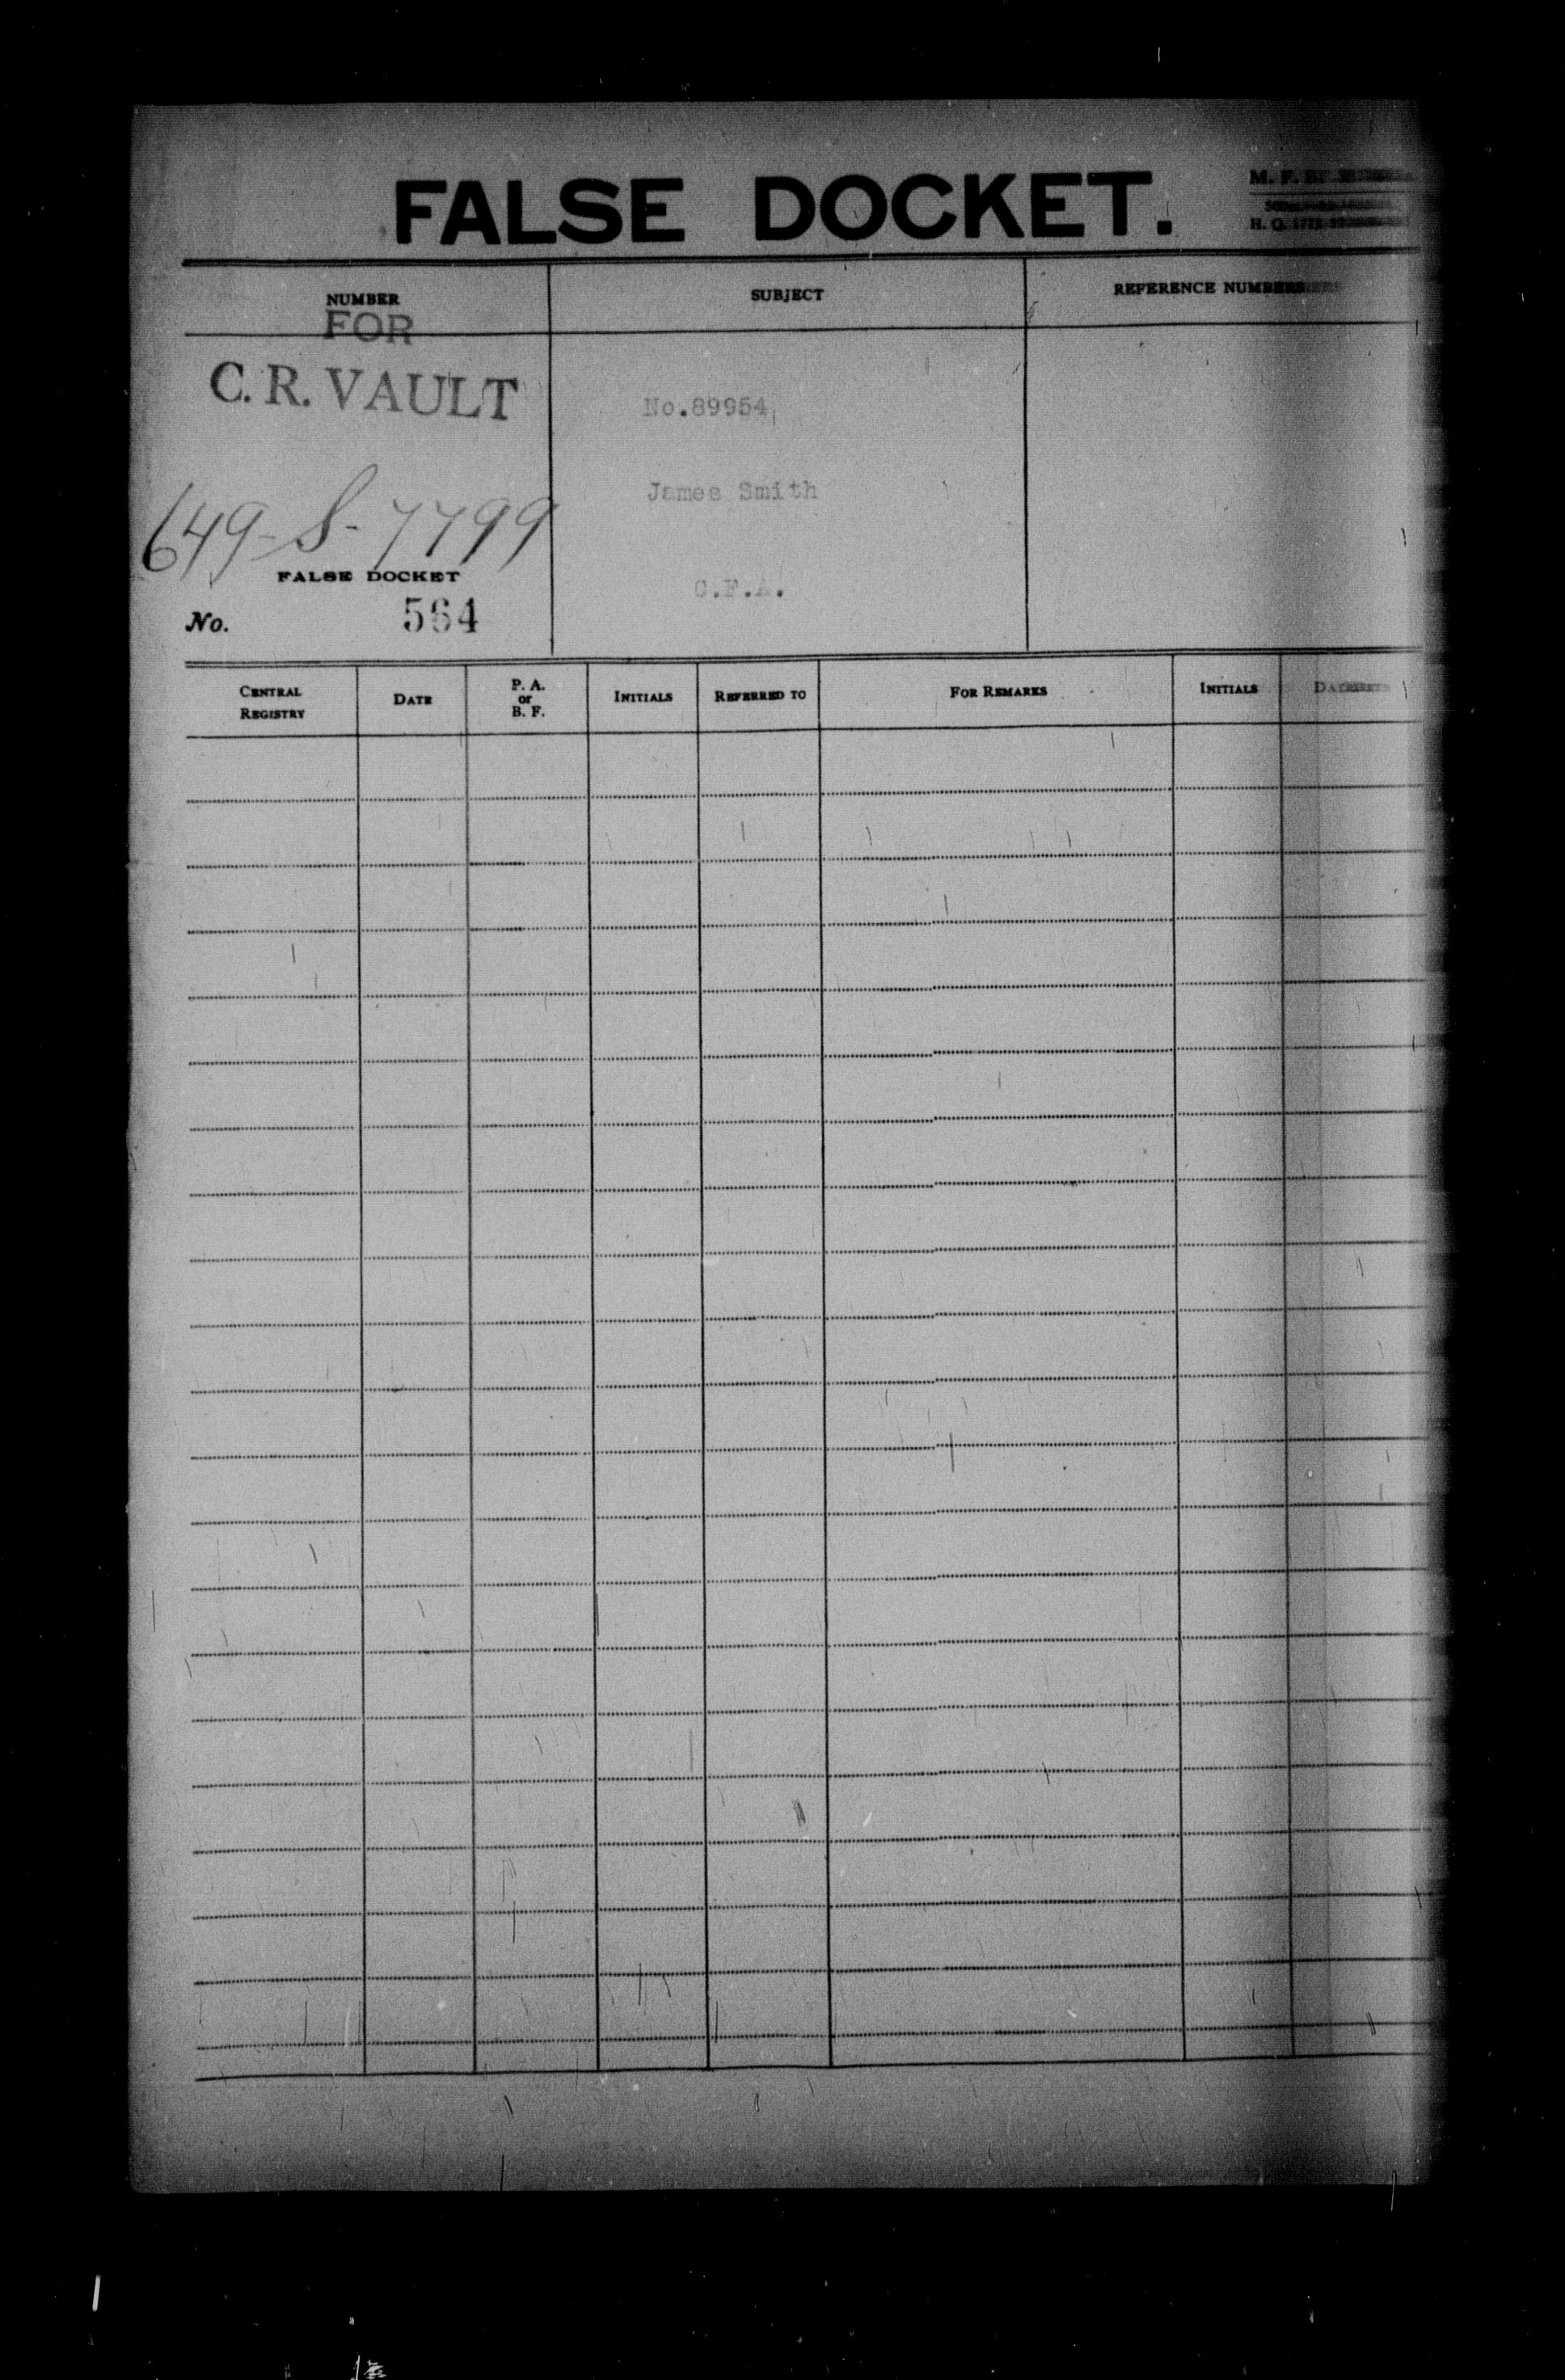 FALSE DOCKET.
NUMBER
SUBJECT
REFERENCE NUMBERS
FOR
C. R. VAULT
No.89954
James Smith
649-S-7799
FALSE DOCKET
C.F.A.
No. 564
CENTRAL REGISTRY
DATE
P. A. or B. F.
INITIALS
REFERRED TO
FOR REMARKS
INITIALS
DATE